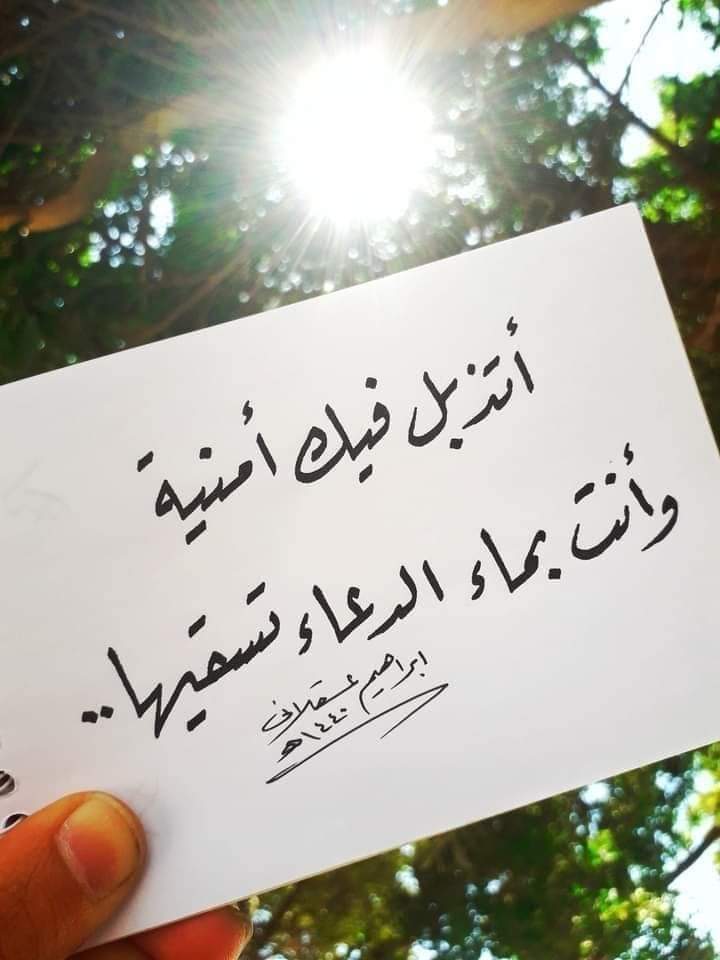 أتذبل فيك أمنية
وأنت بماء الدعاء تسقيها..
ابراهيم عسقلاني
١٤٤٠هـ